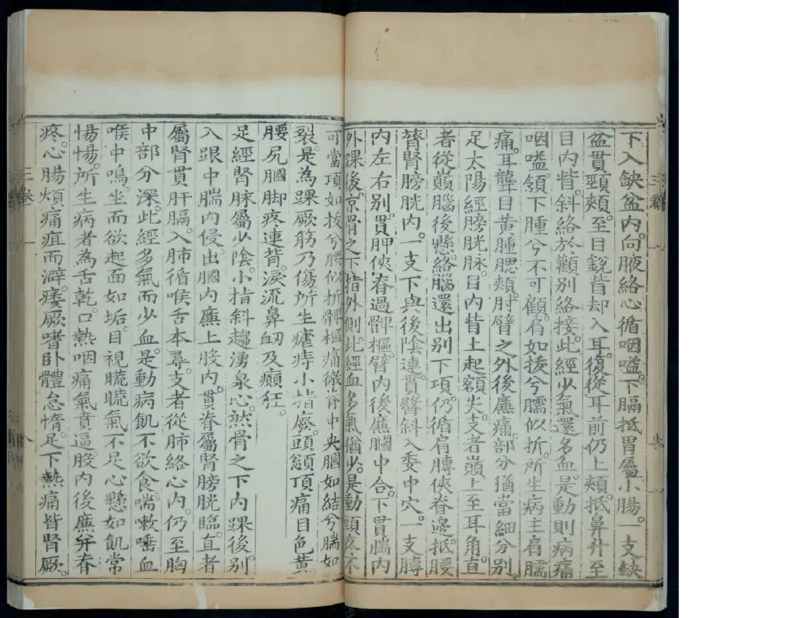 下入缺盆內向腋絡心循咽嗌下膈抵胃屬小腸支缺
盆貫頸頰至目銳眥却入耳復從耳前仍上頰抵鼻升至
目內眥斜絡於顴別絡接此經少氣還多血是動則病痛
咽嗌頷下腫兮不可顧肩如拔兮臑似折所生病主肩臑
痛耳聾目黃腫腮頰肘臂之外後廉痛部分猶當細分別
足太陽經膀胱脉目內眥上起額尖支者巔上至耳角直
者從巔腦後懸絡腦還出別下項仍循肩膊俠脊邊抵腰
膂腎膀胱內一支下與後陰連貫臀斜入委中穴一支膊
內左右別貫胛俠脊過髀樞臂內後廉膕中合下貫腨內
外踝後京骨之下指外側此經血多氣猶少是動頭疼不
可當項如拔兮腰似折髀樞痛徹脊中央膕如結兮腨如
裂是為踝厥筋乃傷所生瘧痔小指廢頭顖頂痛目色黃
腰尻膕脚疼連背淚流鼻衂及癲狂
足經腎脉屬少陰小指斜趨湧泉心然骨之下內踝後別
入跟中腨內侵出膕內廉上股內貫脊屬腎膀胱臨直者
屬腎貫肝膈入肺循喉舌本尋支者從肺絡心內仍至胸
中部分深此經多氣而少血是動病飢不欲食喘嗽唾血
喉中鳴坐而欲起面如垢目視䀮䀮氣不足心懸如飢常
惕惕所生病者為舌乾口熱咽痛氣賁逼股內後廉并脊
疼心腸煩痛疽而澼痿厥嗜卧體怠惰足下熱痛皆腎厥
三卷